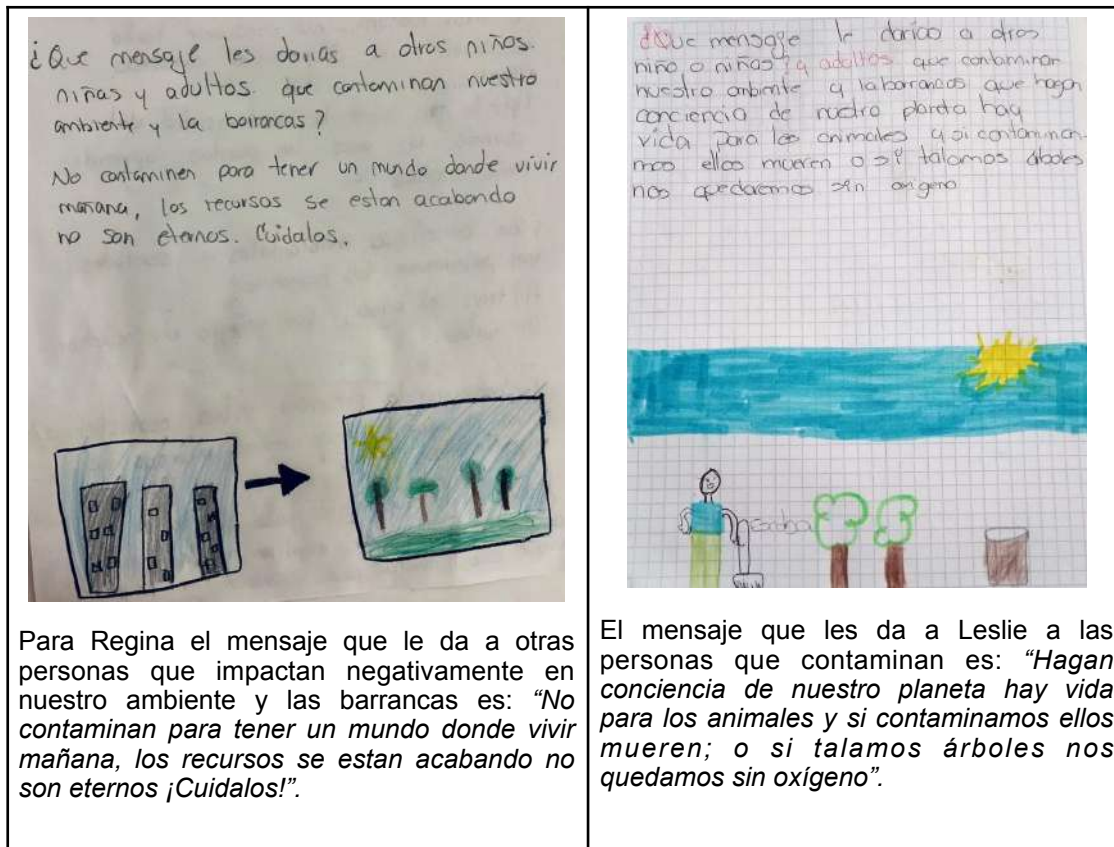 ¿Que mensaje les darias a otros niños.
niñas y adultos. que contaminan nuestro
ambiente y la barrancas?
No contaminen para tener un mundo donde vivir
mañana, los recursos se estan acabando
no son eternos. Cuidalos.
Para Regina el mensaje que le da a otras
personas que impactan negativamente en
nuestro ambiente y las barrancas es: “No
contaminan para tener un mundo donde vivir
mañana, los recursos se estan acabando no
son eternos ¡Cuidalos!”.
¿Que mensaje le darias a otros
niño o niñas? y adultos que contaminan
nuestro anbiente y la barrancas que hagan
conciencia de nuestro planeta hay
vida para los animales y si contamina
mos ellos mueren o si talamos arboles
nos quedaremos sin
El mensaje que les da a Leslie a las
personas que contaminan es: “Hagan
conciencia de nuestro planeta hay vida
para los animales y si contaminamos ellos
mueren; o si talamos árboles nos
quedamos sin oxígeno”.